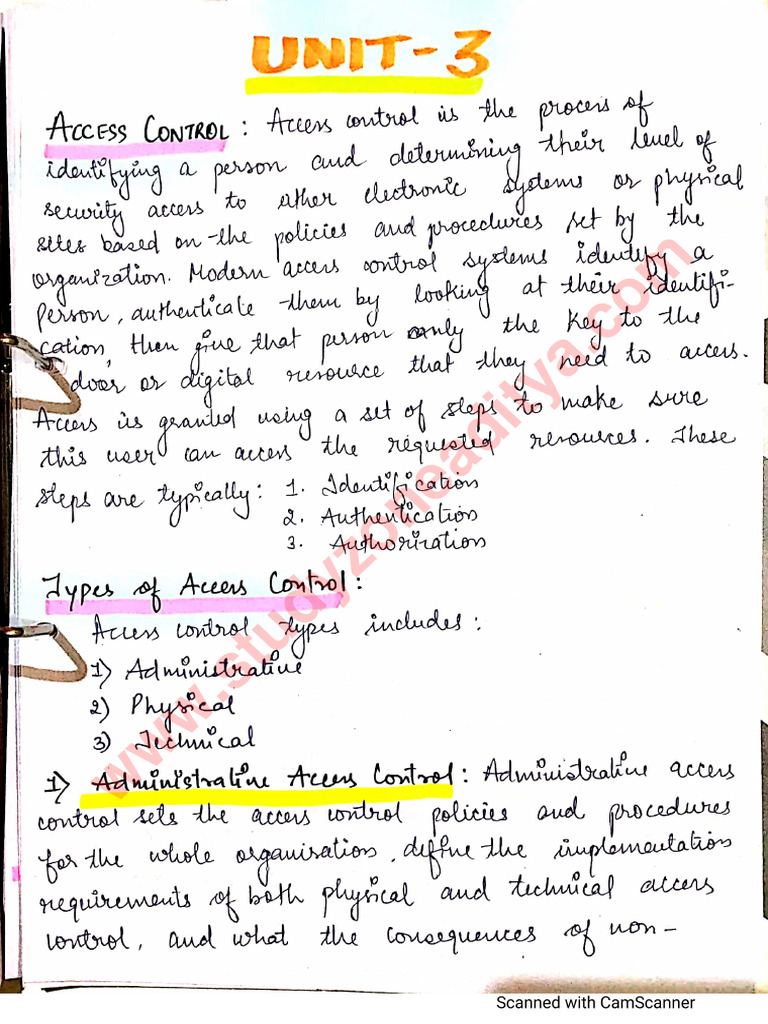 UNIT-3
ACCESS CONTROL : Access control is the process of
identifying a person and determining their level of
security access to either electronic systems or physical
sites based on the policies and procedures set by the
organization. Modern access control systems identify a
person, authenticate them by looking at their identifi-
cation, then give that person only the key to the
door or digital resource that they need to access.
Access is granted using a set of steps to make sure
this user can access the requested resources. These
steps are typically: 1. Identification
2. Authentication
3. Authorization
Types of Access Control :
Access control types includes :
1) Administrative
2) Physical
3) Technical
1) Administrative Access Control : Administrative access
control sets the access control policies and procedures
for the whole organisation, define the implementation
requirements of both physical and technical access
control, and what the consequences of non-
www.studyzoneaditya.com
Scanned with CamScanner